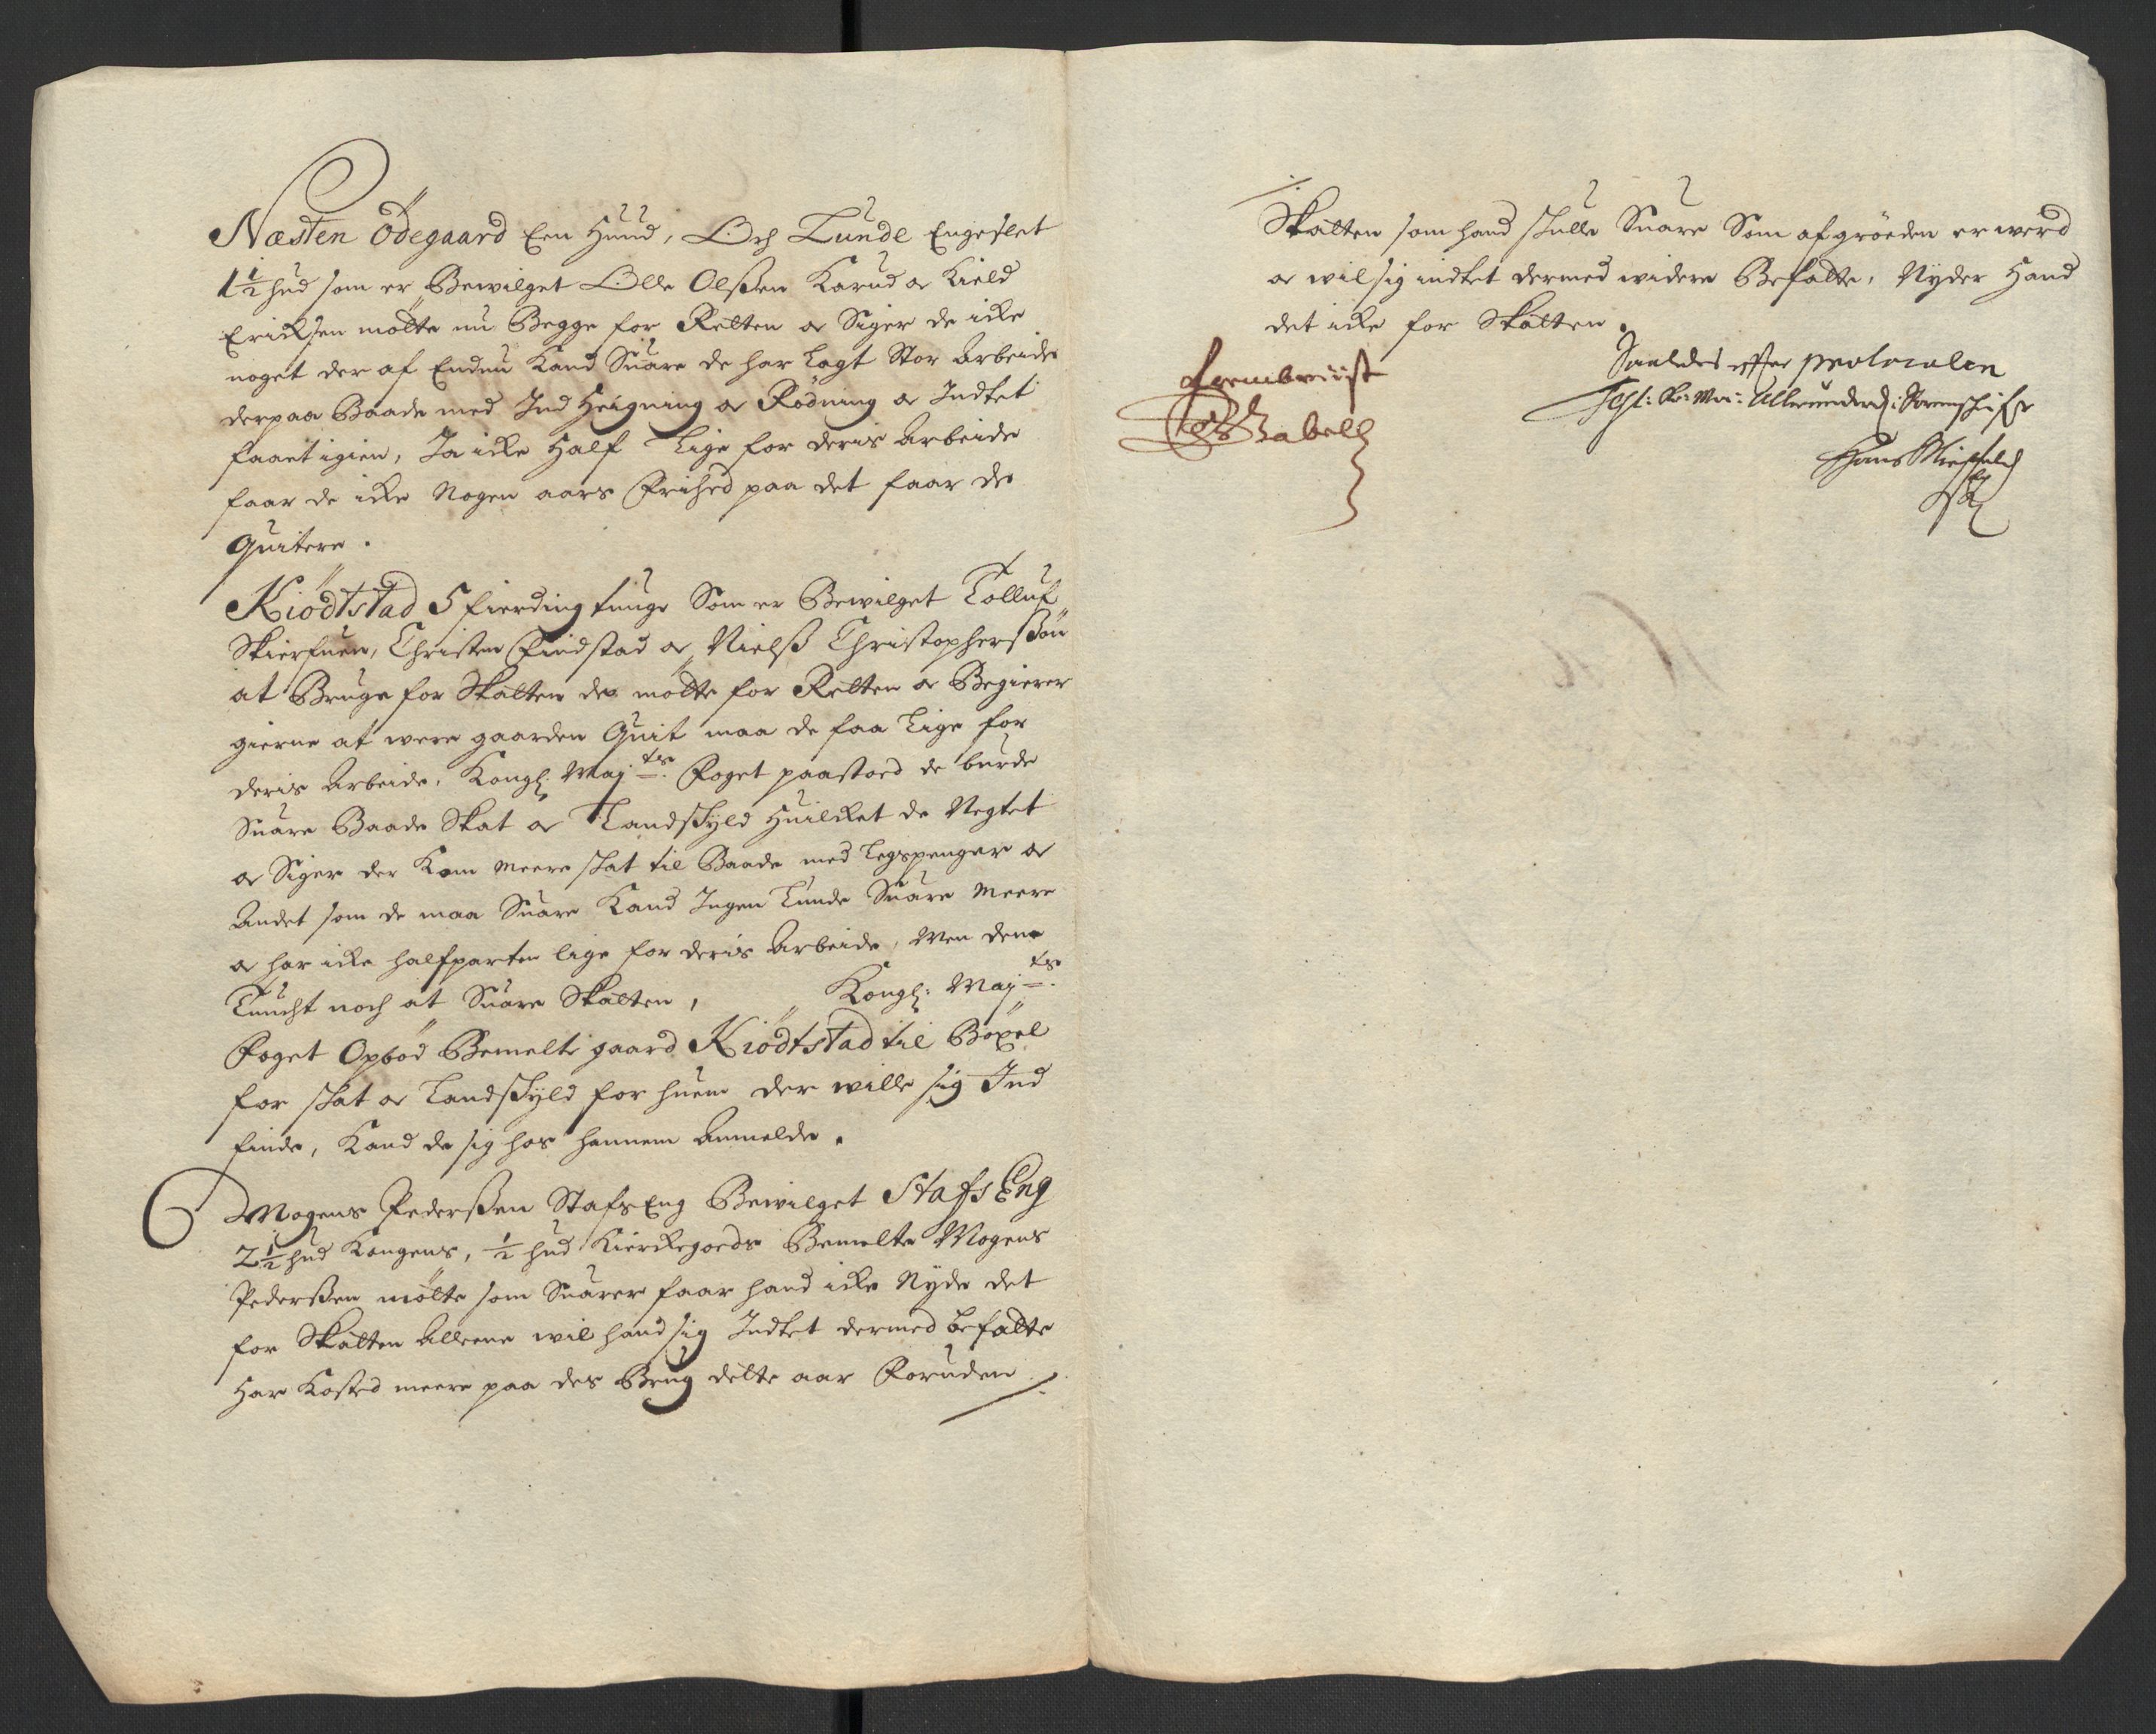 Næsten Ödegaard Een Huud, Och Lunde Engeslet
1½ hud som er Bewilget Olle Olßen Karud oc Kield
Ericksen mötte nu Begge for Retten oc Siger de icke
noget der af Endnu Kand Suare de har Lagt Stor Arbeide
derpaa Baade med Ind Heigning oc Rödning oc Indtet
faaet igien, Ja icke Half Lige for deris Arbeide
faar de icke Nogen aars Frihed paa det faar de
Quitere.
Kiödtstad 5 fierding tunge Som er Bewilget Tolluf
Skierfuen, Christen Findstad oc Nielß Christopherßön
at Bruge for Skatten de mötte for Retten oc Begierer
gierne at were gaarden Quit maa de faa Lige for
deris Arbeide, Kongl: Maj:ts Foget paastoed de burde
Suare Baade Skat oc Landskyld Huilcket de Negtet
oc Siger der Kom meere skat til Baade med Legspenger oc
Andet som de maa Suare Kand Ingen Lunde Suare meere
oc har icke halfparten lige for deris Arbeide, Men dem
Tuucht noch at Suare Skatten, Kongl: Maj:ts
Foget Opbød Bemelte gaard Kiödtstad til Böxel
for skat oc Landskyld for huem der wille sig Ind
finde, Kand de sig hos hannem Anmelde.
Mogens Pederßen StafsEng Bewilget StafsEng
2½ hud Kongens, ½ hud Kierckegoeds Bemelte Mogens
Pederßen mötte som Suarer faar hand icke Nyde det
for Skatten Alleene wil hand sig Indtet dermed befatte
Har Kosted meere paa des Brug dette aar Foruden ./.
./.
Skatten som hand skulle Suare Som afgröeden er werd
oc wil sig indtet dermed widere Befatte, Nyder Hand
det icke for Skatten.
Saaledes efter protocolen
Kr: May: Allerunder: Sorenskrifr
Hans
frembeviist